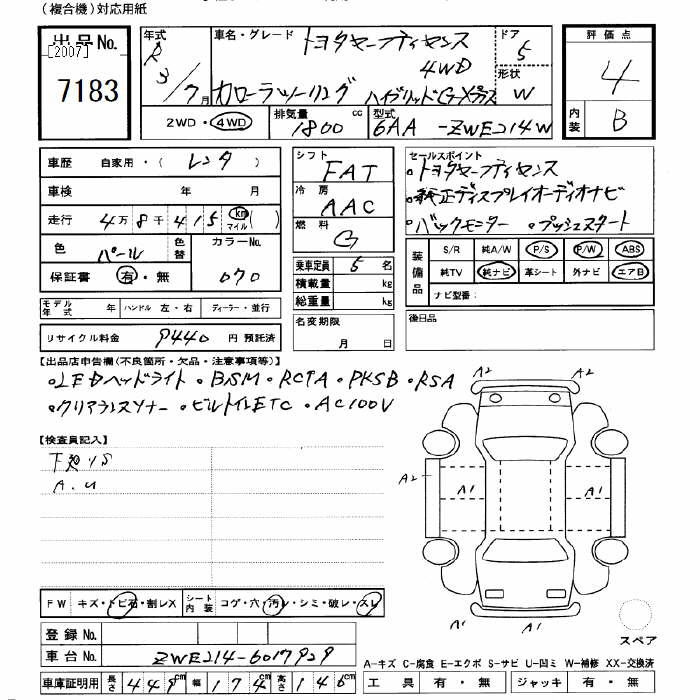 (複合機)対応用紙
出品No.
[2007]
7183
年式
R3/7月
車名・グレード
トヨタセーフティセンス
4WD
カローラツーリング ハイブリッドG-Xプラス
ドア
5
形状
W
2WD・4WD
排気量
1800 cc
型式
6AA-ZWE214W
評価点
4
内装
B
車歴 自家用・(レンタ)
車検 年 月
走行 4万8千415 km マイル ( )
色 パール 色替 カラーNo. 070
保証書 有・無
モデル年式 年 ハンドル 左・右 ディーラー・並行
リサイクル料金 9440 円 預託済
シフト FAT
冷房 AAC
燃料 G
乗車定員 5 名
積載量 kg
総重量 kg
名変期限
月 日
セールスポイント
・トヨタセーフティセンス
・純正ディスプレイオーディオナビ
・バックモニター ・プッシュスタート
装備品
S/R 純A/W P/S P/W ABS
純TV 純ナビ 革シート 外ナビ エアB
ナビ型番:
後日品
【出品店申告欄(不良箇所・欠品・注意事項等)】
・LEDヘッドライト ・BSM ・RCTA ・PKSB ・RSA
・クリアランスソナー ・ビルトインETC ・AC100V
【検査員記入】
下廻りS
A.U
A2 A2
A2 A1 A1
A2 A2
スペア
FW キズ・トビ石・割レX シート内装 コゲ・穴・汚レ・シミ・破レ・スレ
登録No.
車台No. ZWE214-6017929
車庫証明用 長さ 449cm 幅 174cm 高さ 146cm
A-キズ C-腐食 E-エクボ S-サビ U-凹ミ W-補修 XX-交換済
工具 有・無 ジャッキ 有・無